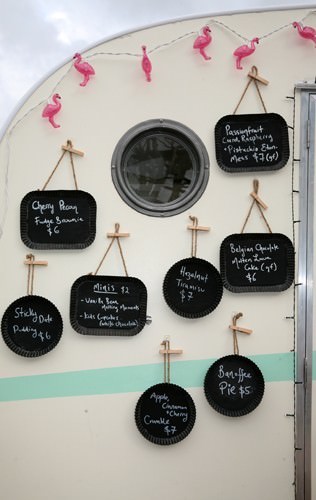 Passionfruit
Curd, Raspberry
+ Pistachio Eton
Mess $7 (gf)
Cherry Pecan
Fudge Brownie
$6
Belgian Chocolate
Molten Lava
Cake (gf)
$6
Hazelnut
Tiramisu
$7
Minis $2
- Vanilla Bean
Melting Moments
- Kids Cupcakes
(white chocolate)
Sticky Date
Pudding $6
Banoffee
Pie $5
Apple,
Cinnamon
+ Cherry
Crumble
$7